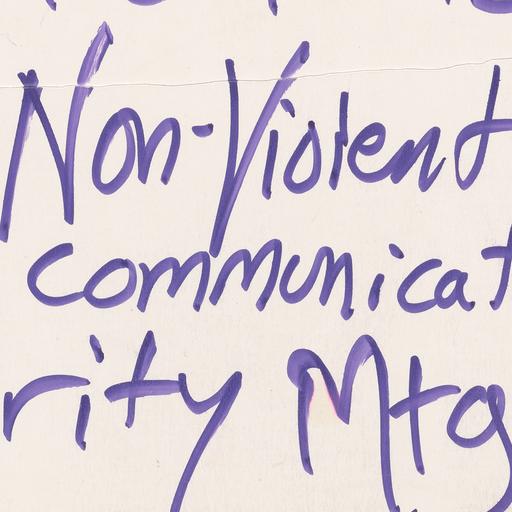 Non-Violent
communicat
rity Mtg